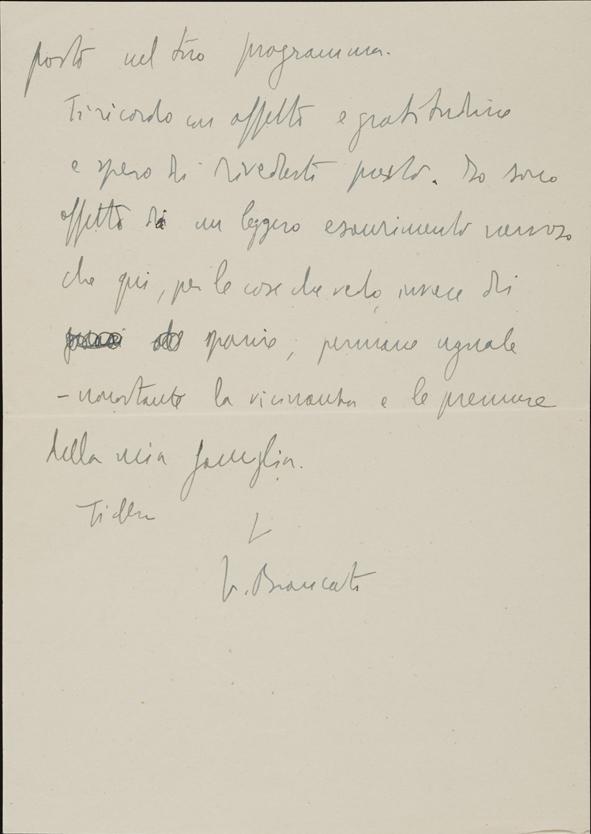 posto nel tuo programma.
Ti ricordo con affetto e gratitudine
e spero di rivederti presto. Io sono
affetto da un leggero esaurimento nervoso
che qui, per le cose che vedo, invece di
sparire, permane uguale
– nonostante la vicinanza e le premure
della mia famiglia.
Tuo
V. Brancati